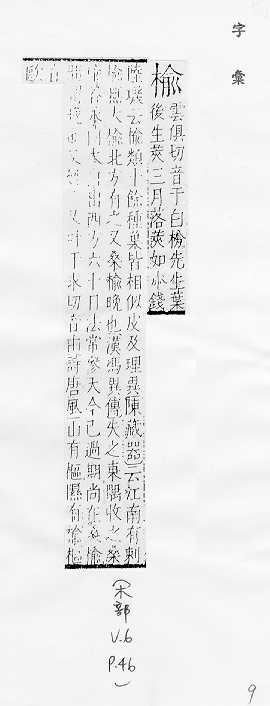 字彙
榆
雲俱切音于白枌先生葉
後生莢三月落莢如小錢
陸璣云榆類十餘種葉皆相似皮及理異陳藏器云江南有刺
榆無大榆北方有之又桑榆晚也漢馮異傳失之東隅收之桑
大 出西方六十日法常參大今已過期尚在桑榆
又叶 于求切音由詩唐風山有樞隰有榆樞
(木部
V.6
P.46
)
9